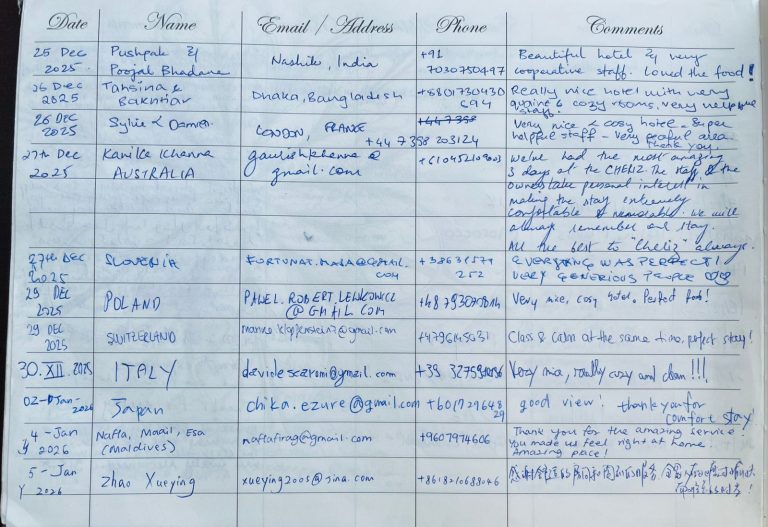 Date Name Email / Address Phone Comments
25 Dec Pushpak & +91 Beautiful hotel & very
2025. Poojal Bhadane Nashik, India 7030750497 cooperative staff. Loved the food!
26 Dec Tahsina & Dhaka, Bangladesh +8801730430 Really nice hotel with very
2025 Bakhtiar 694 quaint & cozy rooms. very helpful staff.
26 Dec Sylvie & Damien LONDON, FRANCE Very nice & cosy hotel. Super
2025 +44 7398 203124 helpful staff - very peaful area.
Thank you.
27th Dec Kanika Khanna gaurishkhanna@ We've had the most amazing
2025 AUSTRALIA gmail.com 3 days at the CHELIZ. The staff & the
owners take personal interest in
making the stay extremely
comfortable & memorable. We will
always remember our stay.
All the best to "Cheliz" always.
27th Dec SLOVENIA FORTUNAT.MASA@GMAIL. +38631577 EVERYTHING WAS PERFECT!
2025 COM 252 VERY GENERIOUS PEOPLE ♡♡
29 DEC POLAND PAWEL.ROBERT.LEWKOWICZ Very nice, cosy hotel. Perfect food!
2025 @GMAIL.COM
29 DEC SWITZERLAND @gmail.com +4796145031 Class & calm at the same time, perfect stay!
2025
30.XII.2025 ITALY @gmail.com +39 Very nice, really cozy and clean!!!
02-Jan-2026 Japan chika.ezure@gmail.com +601729648 good view! thank you for
29 comfore stay!
4-Jan Nafta, Maail, Esa naftafirag@gmail.com +9607974606 Thank you for the amazing service.
2026 (Maldives) You made us feel right at home.
Amazing pace!
5-Jan Zhao Xueying xueying2005@sina.com +8618210688046 感谢
2026